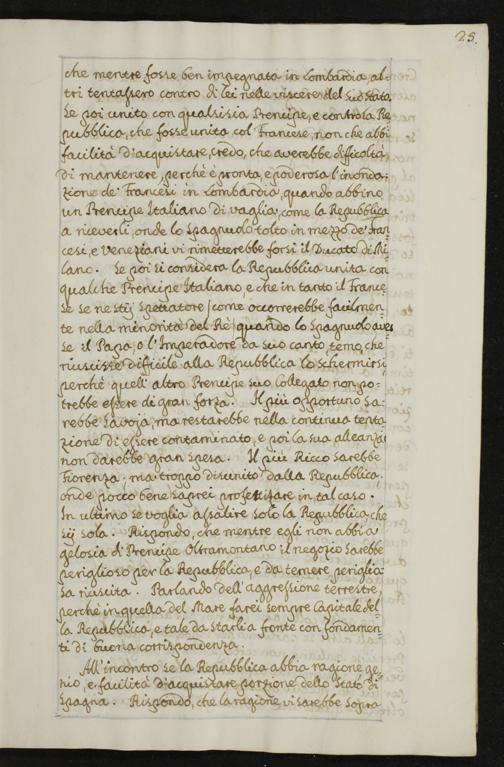 25.
che mentre fosse ben impegnata in Lombardia, al=
tri tentassero contro di lei nelle viscere del suo Stato.
Se poi unito con qualsisia Prencipe, e contro la Re
pubblica, che fosse unita col Francese, non che abbi
facilità d'acquistare, credo, che averebbe difficoltà
di mantenere, perchè è pronta, e poderosa l'inonda=
zione de' Francesi in Lombardia, quando abbino
un Prencipe Italiano di vaglia, come la Repubblica
a riceverli, onde lo Spagnuolo tolto in mezzo de' Fran
cesi, e Veneziani vi rimetterebbe forsi il Ducato di Mi
lano. Se poi si considera la Repubblica unita con
qualche Prencipe Italiano, e che in tanto il France
se se ne stij Spettatore /come occorrerebbe facilmen
te nella minorità del Rè/ quando lo Spagnuolo aves
se il Papa, o l'Imperadore da suo canto, temo, che
riuscisse difficile alla Repubblica lo schermirsi
perchè quell'altro Prencipe suo Collegato non po=
trebbe essere di gran forza. Il più opportuno sa=
rebbe Savoja, ma restarebbe nella continua tenta
zione di essere contaminato, e poi la sua alleanza
non darebbe gran spesa. Il più Ricco sarebbe
Fiorenza; ma troppo disunito dalla Repubblica.
onde pocco bene saprei profettizare in tal caso.
In ultimo se voglia assalire solo la Repubblica, che
sij sola. Rispondo, che mentre egli non abbia
gelosia di Prencipe Oltramontano il negozio sarebbe
periglioso per la Repubblica, e da temere periglia
sa riuscita. Parlando dell'aggressione terrestre,
perchè in quella del Mare farei sempre Capitale del=
la Repubblica, e tale da starli a fronte con fondamen=
ti di buona corrispondenza.
All'incontro se la Repubblica abbia ragione ge
nio, e facilità d'acquistare porzione dello Stato di
Spagna. Rispondo, che la ragione vi sarebbe sopra